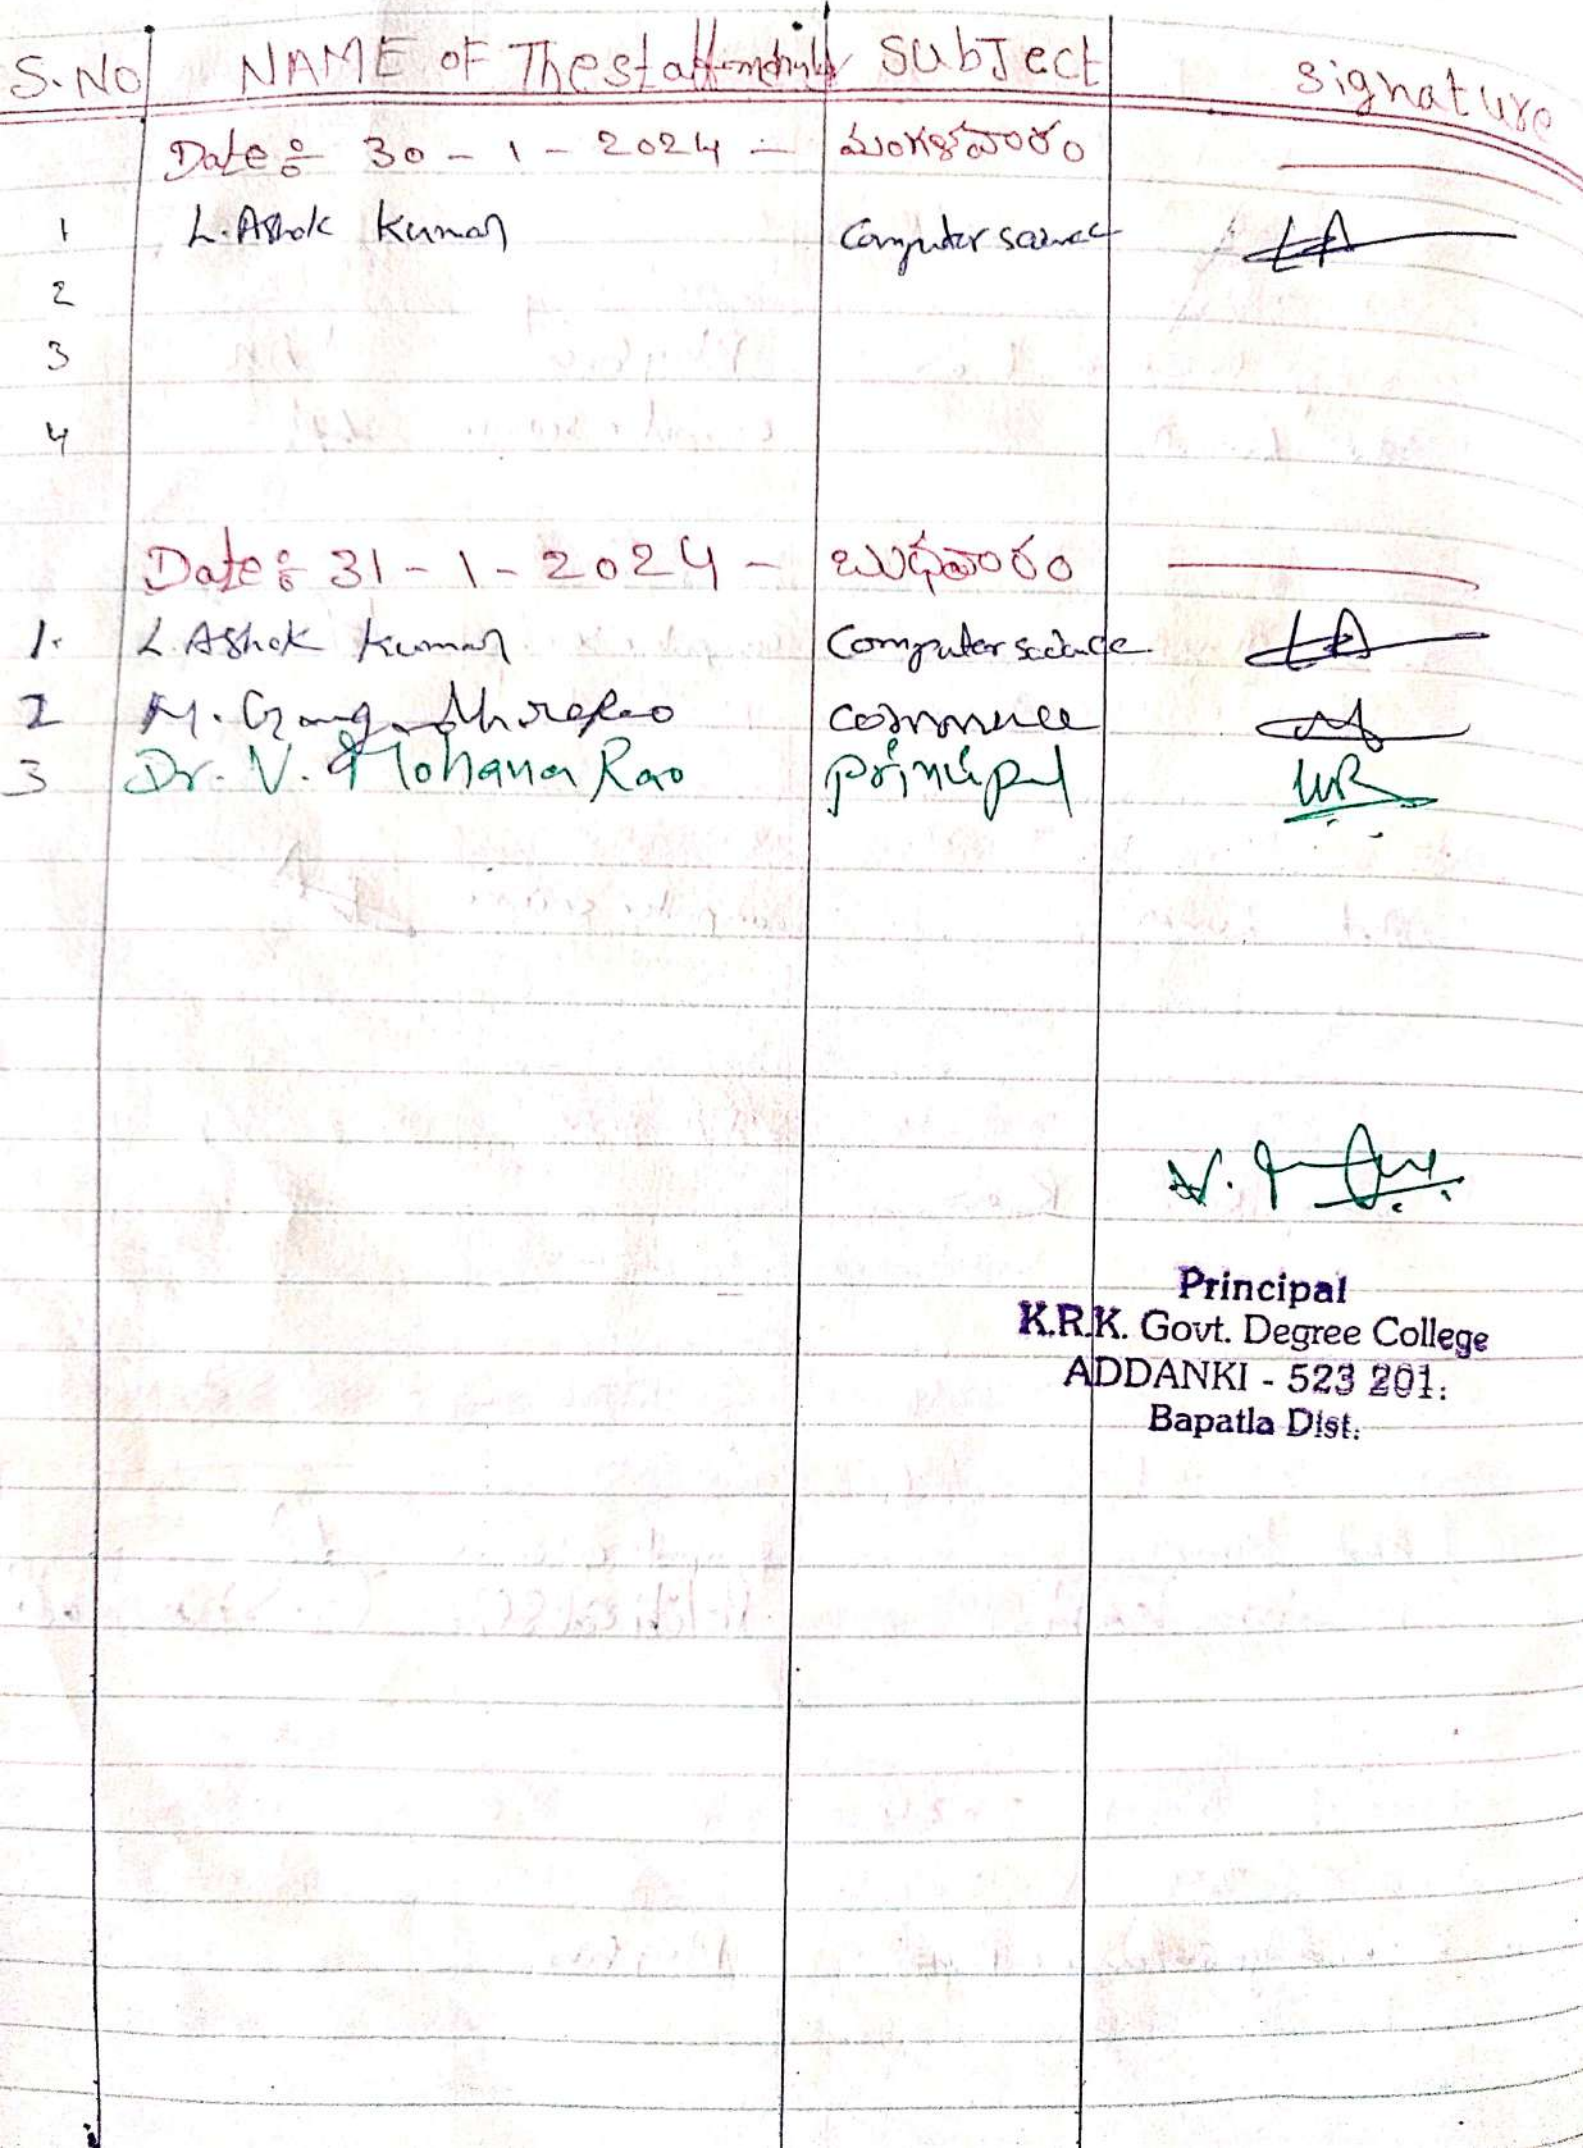 S.NO NAME OF The staff SUBJect Signature
Date: 30-1-2024 - మంగళవారం
1 L. Ashok Kumar Computer science
2
3
4
Date: 31-1-2024 - బుధవారం
1. L. Ashok Kumar Computer science
2 M. Gangadhara Rao commerce
3 Dr. V. Mohana Rao principal
Principal
K.R.K. Govt. Degree College
ADDANKI - 523 201.
Bapatla Dist.